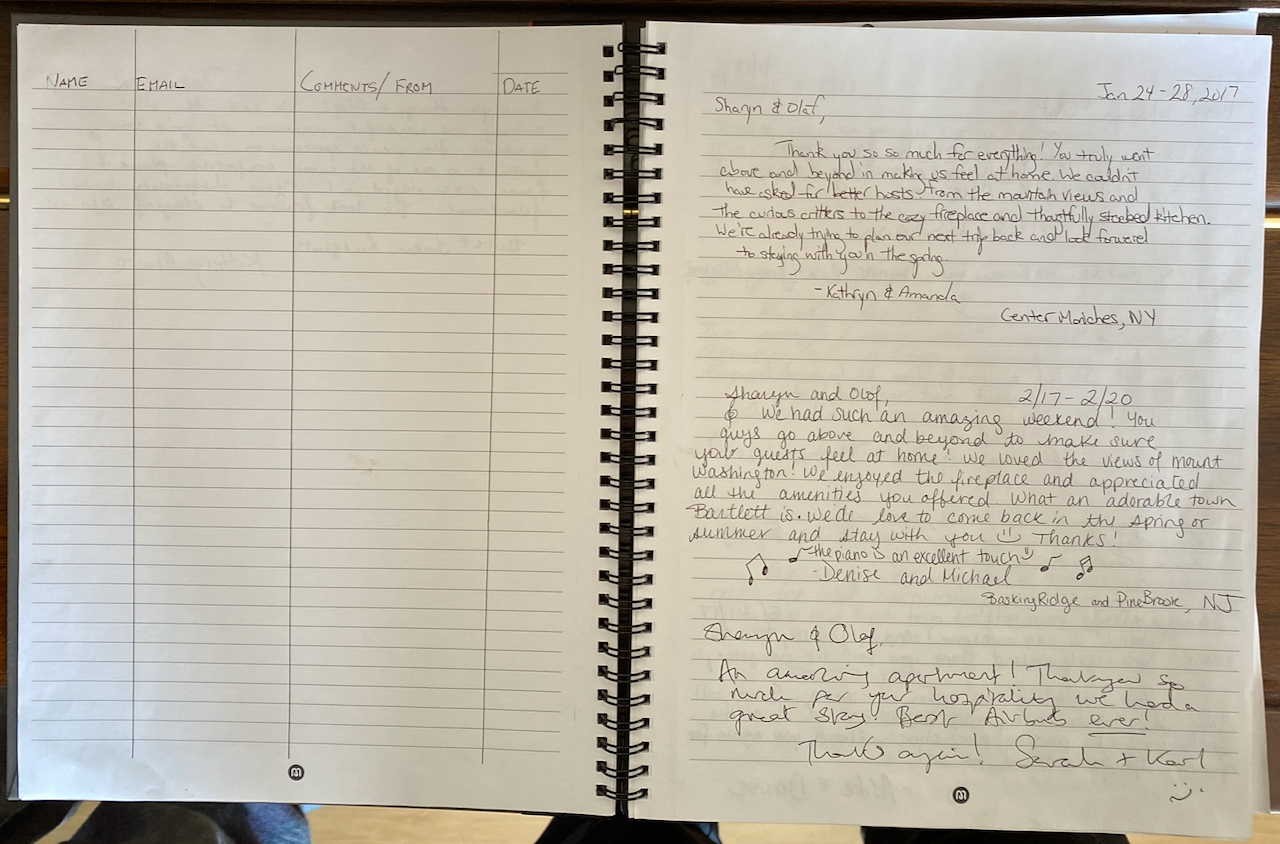 NAME EMAIL COMMENTS/ FROM DATE
Jan 24-28, 2017
Sharyn & Olaf,
Thank you so so much for everything! You truly went
above and beyond in making us feel at home. We couldn't
have asked for better hosts. From the mountain views and
the curious critters to the cozy fireplace and thoughtfully stocked kitchen.
We're already trying to plan our next trip back and look forward
to staying with you in the spring.
-Kathryn & Amanda
Center Moriches, NY
Sharyn and Olof, 2/17-2/20
We had such an amazing weekend! You
guys go above and beyond to make sure
your guests feel at home! We loved the views of mount
Washington! We enjoyed the fireplace and appreciated
all the amenities you offered. What an adorable town
Bartlett is. We'de love to come back in the spring or
summer and stay with you Thanks!
the piano is an excellent touch
-Denise and Michael
Basking Ridge and Pine Brook, NJ
Sharyn & Olaf,
An amazing apartment! Thankyou so
much for your hospitality we had a
great stay! Best Airbnb ever!
Thanks again! Sarah + Karl